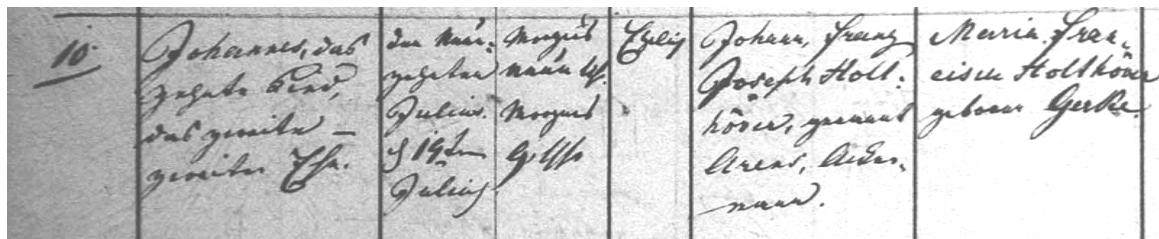 10.
Johannes, das
zehnte Kind,
das zweite —
zweiter Ehe.
den Neun-
zehnten
Julius.
d 19ten
Julius.
Morgens
neun Uhr.
Morgens
Ehelich
Johann, Franz
Joseph Holt-
höver, genannt
Arens, Acker-
mann.
Maria Fran-
cisca Holthöver
geborne Gerke.